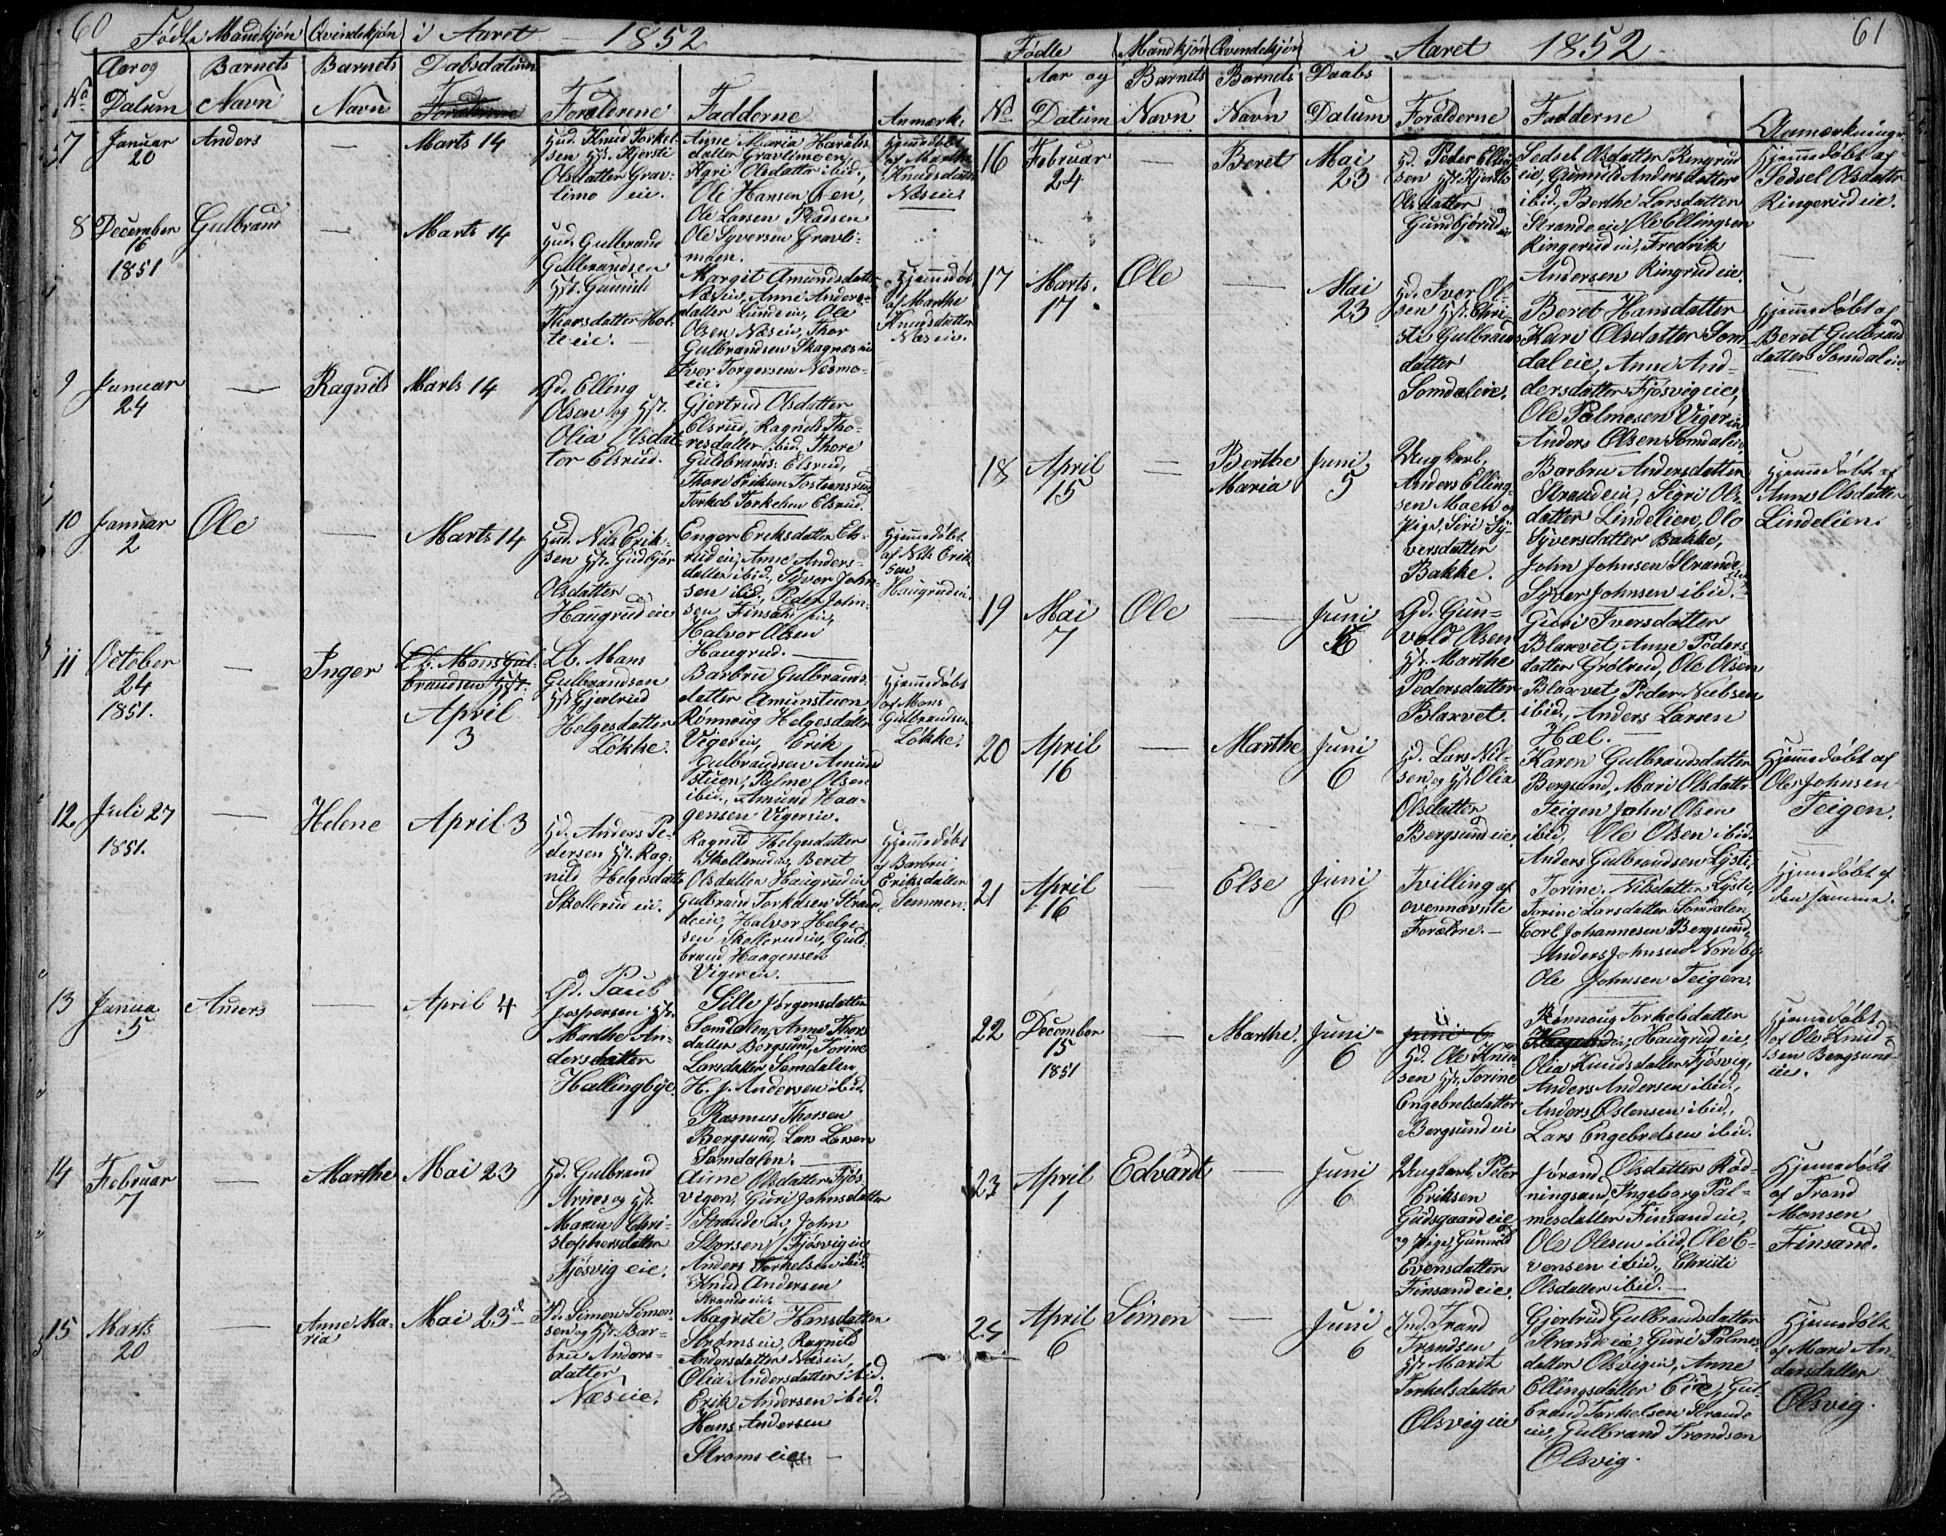 60
Fødte Mandkjøn Qvindekjøn i Aaret 1852
No
Aar og Datum
Barnets Navn
Barnets Navn
Dabsdatum
Forældrene
Fadderne
Anmærk.
7
Januar 20
Anders
—
Marts 14
Hud. Knud Torkel-
sen Hst. Kjersti
Olsdatter Grav-
limo eie.
Anne Maria Haralds
datter Gravlimoen,
Kari Olsdatter ibid.,
Ole Hansen Øen,
Ole Larsen
Ole Syversen Gravli-
moen.
Hjemmedøbt
af Marthe
Knudsdatter
Næs eie
8
December
16
1851
Gulbrand
—
Marts 14
Hud. Gulbrand
Gulbrandsen
Hst. Gunild
Thorsdatter Hol-
te eie.
Margit Amundsdatter
Næs eie, Anne Anders-
datter Lunde eie, Ole
Olsen Næs eie, Thor
Gulbrandsen Skagnæs eie
Iver Torgersen Næsmo-
eie.
Hjemmedøbt
af Marthe
Knudsdatter
Næs eie.
9
Januar
24
—
Ragnild
Marts 14
Gd. Elling
Olsen og Hst.
Olia Olsdat-
ter Elsrud.
Gjertrud Olsdatter
Elsrud, Ragnild Tho-
resdatter ibid. Thore
Guldbrands. Elsrud,
Thore Eriksen Tosteensrud
Torkel Torkelsen Elsrud.
10
Januar
2
Ole
—
Marts 14
Hud. Nils Erik-
sen Hst. Gudbjør
Olsdatter
Haugrud eie
Enger Eriksdatter Els-
rud eie, Anne Anders-
datter ibid., Syver John-
sen ibid., Peder John-
sen Finsand eie,
Halvor Olsen
Haugrud.
Hjemmedøbt
af Nils Erik-
sen
Haugrud eie.
11
October
24
1851.
—
Inger
Lb. Mons Gul-
brandsen Hst.
April
3
Lb. Mans
Gulbrandsen
Hst. Gjertrud
Helgesdatter
Løkke.
Barbru Gulbrands-
datter Amunstuen
Rønnoug Helgesdatter
Viger eie, Erik
Gulbrandsen Amund
stuen, Palme Olsen
ibid., Amund Haa-
gensen Viger eie.
Hjemmedøbt
af Mons
Gulbrandsen
Løkke.
12
Juli 27
1851.
—
Helene
April 3
Hd. Anders Pe-
dersen Hst. Rag-
nild Helgesdatter
Skollerud eie.
Ragnild Helgesdatter
Skollerud eie, Beret
Olsdatter Haugrud eie
Gulbrand Torkelsen Stran-
de eie, Halvor Helge-
sen Skollerud eie, Guld-
brand Haagensen
Viger eie.
Hjemmedøbt
af Barbru
Eriksdatter
Semmen.
13
Janua
5
Anders
—
April 4
Gd. Paul
Jespersen Hst.
Marthe An-
dersdatter
Hallingbye.
Sille Jørgensdatter
Somdalen, Anne Thors
datter Bergsund, Torine
Larsdatter Somdalen,
H. J. Andersen ibid.
Rasmus Thorsen
Bergsund, Lars Larsen
Somdalen.
14
Februar
7
—
Marthe
Mai 23
Hd. Gulbrand
Arnes og Hst.
Maren Chri-
stophersdatter
Fjøsvig eie.
Anne Olsdatter Fjøs-
vigen, Guri Johnsdatter
Strande eie, John
Storsen Fjøsvig eie
Anders Torkelsen ibid.
Knud Andersen
Strande eie.
15
Marts
20
Anne Ma-
ria
Mai 23d
Hd. Simen Simen-
sen og Hst. Bar-
bru Anders-
datter
Næs eie.
Magrete Hansdatter
Strøms eie, Ragnild
Andersdatter Næs eie,
Olia Andersdatter ibid.
Erik Andersen ibid.
Hans Andersen
Strøms eie.

61
Fødte Mandkjøn Qvindekjøn i Aaret 1852
No
Aar og Datum
Barnets Navn
Barnets Navn
Daabs Datum
Forælderne
Fadderne
Anmærkninger
16
Februar
24
—
Beret
Mai
23
Hd. Peder Elling-
sen Hst. Kjersti
Olsdatter
Gundbjørud
eie
Sedsel Olsdatter Ringrud
eie, Gunnild Andersdatter
ibid, Berthe Larsdatter
Strande eie, Ole Ellingsen
Ringerud eie, Fredrik
Andersen Ringrud eie.
Hjemmedøbt af
Sedsel Olsdatter
Ringerud eie.
17
Marts.
17
Ole
—
Mai
23
Hd. Iver Ol-
sen Hst. Chri-
sti Gulbrands
datter
Somdal eie.
Beret Hansdatter
Kari Olsdatter Som-
dal eie, Anne An-
dersdatter Fjøsvig eie,
Ole Palmesen Viger eie
Anders Olsen Somdal eie,
Hjemmedøbt af
Beret Gulbrands
datter Somdal eie
18
April
15
—
Berthe
Maria
Juni
5
Ungkarl,
Anders Elling-
sen Moen og
Pige Siri Sy-
versdatter
Bakke.
Barbru Andersdatter
Strande eie, Sigri Ols-
datter Lindelien, Olo
Syversdatter Bakke,
John Johnsen Strande
eie
Syver Johnsen ibid.
Hjemmedøbt af
Anne Olsdatter
Lindelien.
19
Mai
7
Ole
—
Juni
6
Gd. Gun-
vald Olsen
Hst. Marthe
Pedersdatter
Blaxvet.
Guri Iversdatter
Blaxvet, Anne Peders
datter Grølrud, Ole Olsen
Blaxvet, Peder Nielsen
ibid., Anders Larsen
Hæl.
20
April
16
—
Marthe
Juni
6
Hd. Lars Nil-
sen og Hst Olia
Olsdatter
Bergsund eie.
Karen Gulbrandsdatter
Bergsund, Mari Olsdatter
Teigen, John Olsen
ibid. Ole Olsen ibid.
Anders Gulbrandsen Lyste,
Hjemmedøbt af
Ole Johnsen
Teigen.
21
April
16
—
Else
Juni
6
Tvilling af
ovennævnte
Forældre.
Torine Nilsdatter Lyste,
Torine Larsdatter Somdalen,
Carl Johannesen Bergsund,
Anders Johnsen Nordby,
Ole Johnsen Teigen.
Hjemmedøbt af
den samme.
22
December
15
1851
—
Marthe.
Juni
6
Juni 6
Hd. Ole Knud-
sen Hst. Torine
Engebretsdatter
Bergsund eie
Rønnoug Torkelsdatter
Haugrud eie,
Olia Knudsdatter Fjøsvig,
Anders Andersen ibid.,
Anders Østensen ibid.,
Lars Engebretsen ibid.
Hjemmedøbt
af Ole Knud-
sen Bergsund
eie.
23
April
1
Edvardt
—
Juni
6
Ungkarl, Peter
Eriksen
Gudsgaard eie
og Pige Gunnild
Evensdatter
Finsand eie.
Jørand Olsdatter Rød-
ningsand, Ingeborg Pal-
mesdatter Finsand eie,
Ole Olesen ibid., Ole E-
vensen ibid., Christi
Olsdatter ibid.
Hjemmedøbt
af Trond
Monsen
Finsand.
25
April
6
Simon
—
Juni
6
Ind. Trond
Trondsen
Hst Marit
Torkelsdatter
Olsvig eie
Gjertrud Gulbrandsdatter
Strande eie, Guri Palmes-
datter Olsvig eie, Anne
Ellingsdatter Eid, Gul-
brand Torkelsen Strande
eie, Gulbrand Trondsen
Olsvig.
Hjemmedøbt
af Mari An-
dersdatter
Olsvig.